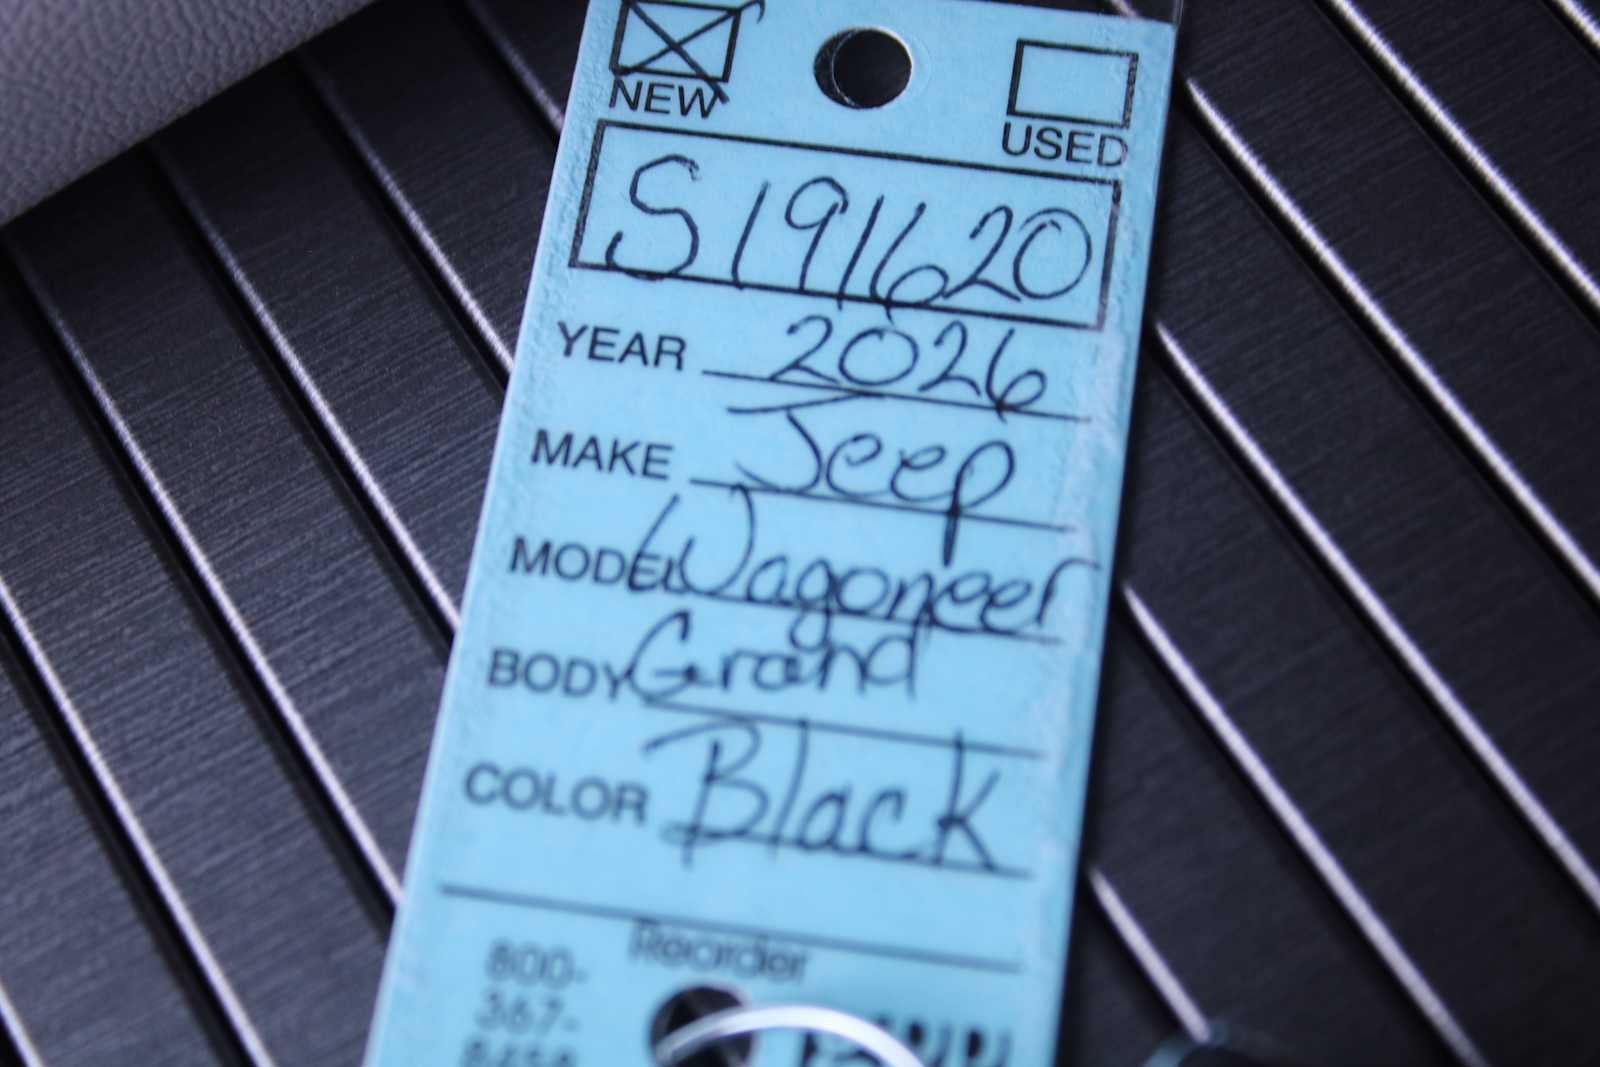 NEW
USED
S191620
YEAR 2026
MAKE Jeep
MODEL Wagoneer
BODY Grand
COLOR Black
Reorder
800-
367-